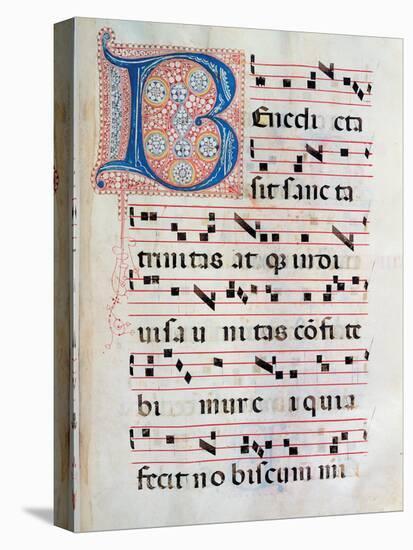 Benedicta
sit sancta
trinitas atq indi
uisa u nitas cõfitē
bi mur e i quia
fecit no biscum mi